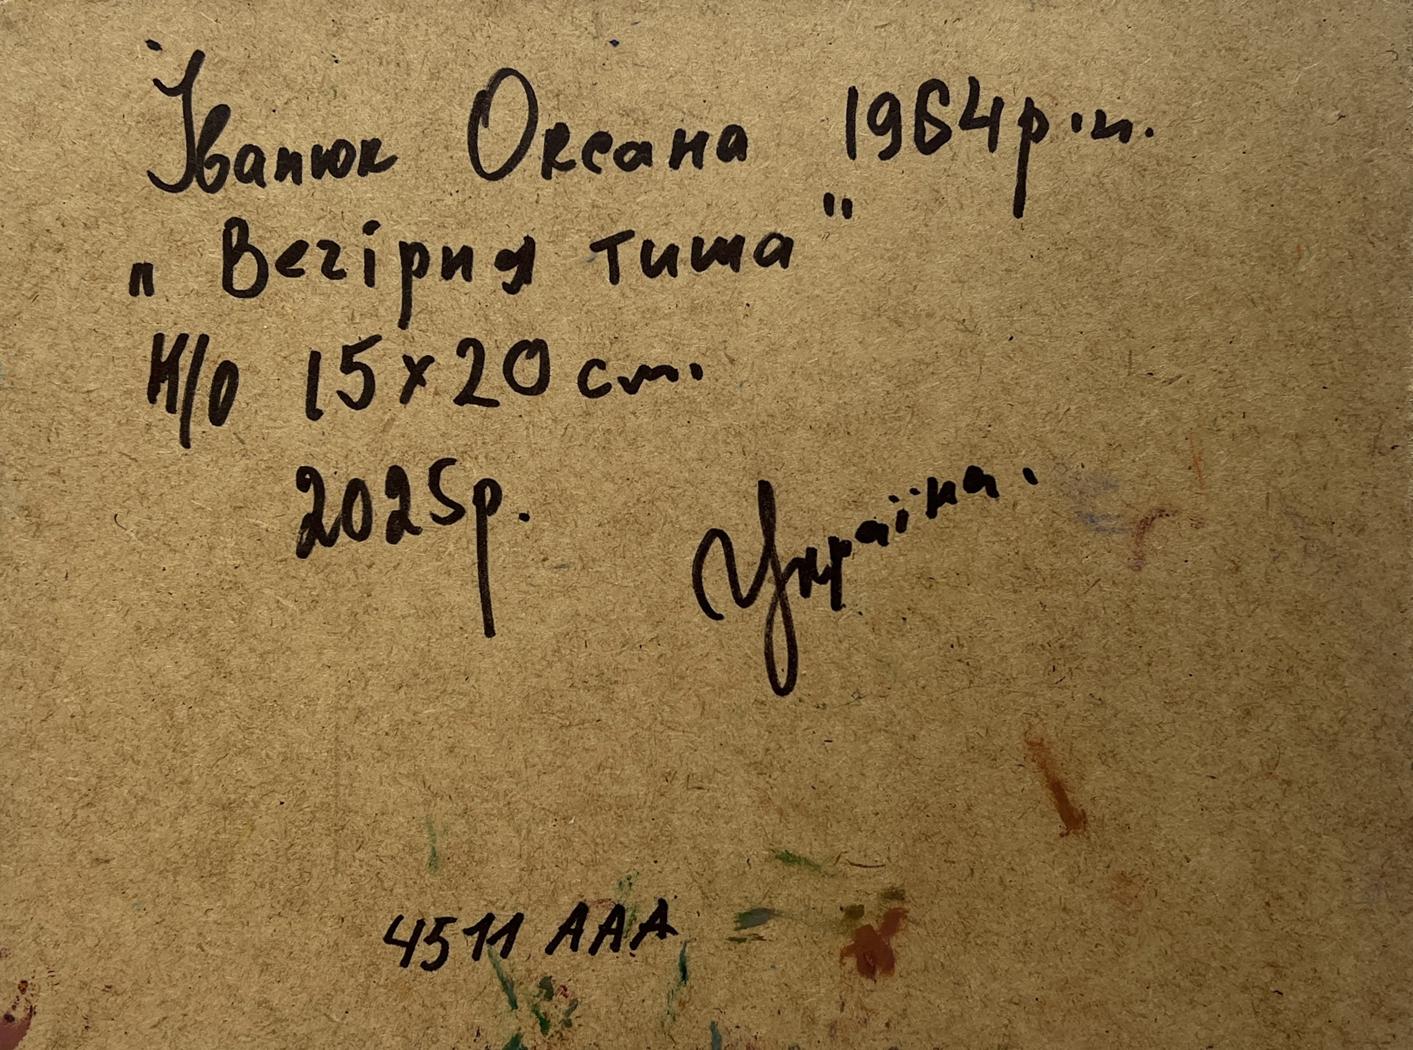 Іванюк Оксана 1964 р.н.
„Вечірня тиша"
К/О 15x20 см.
2025р.
Україна.
4511 AAA